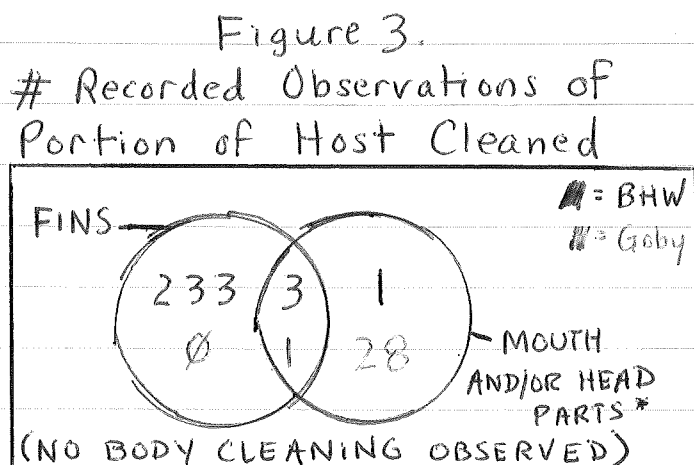 Figure 3.
# Recorded Observations of
Portion of Host Cleaned
= BHW
FINS
= Goby
233 3 1
Ø 1 28
MOUTH
AND/OR HEAD
PARTS*
(NO BODY CLEANING OBSERVED)